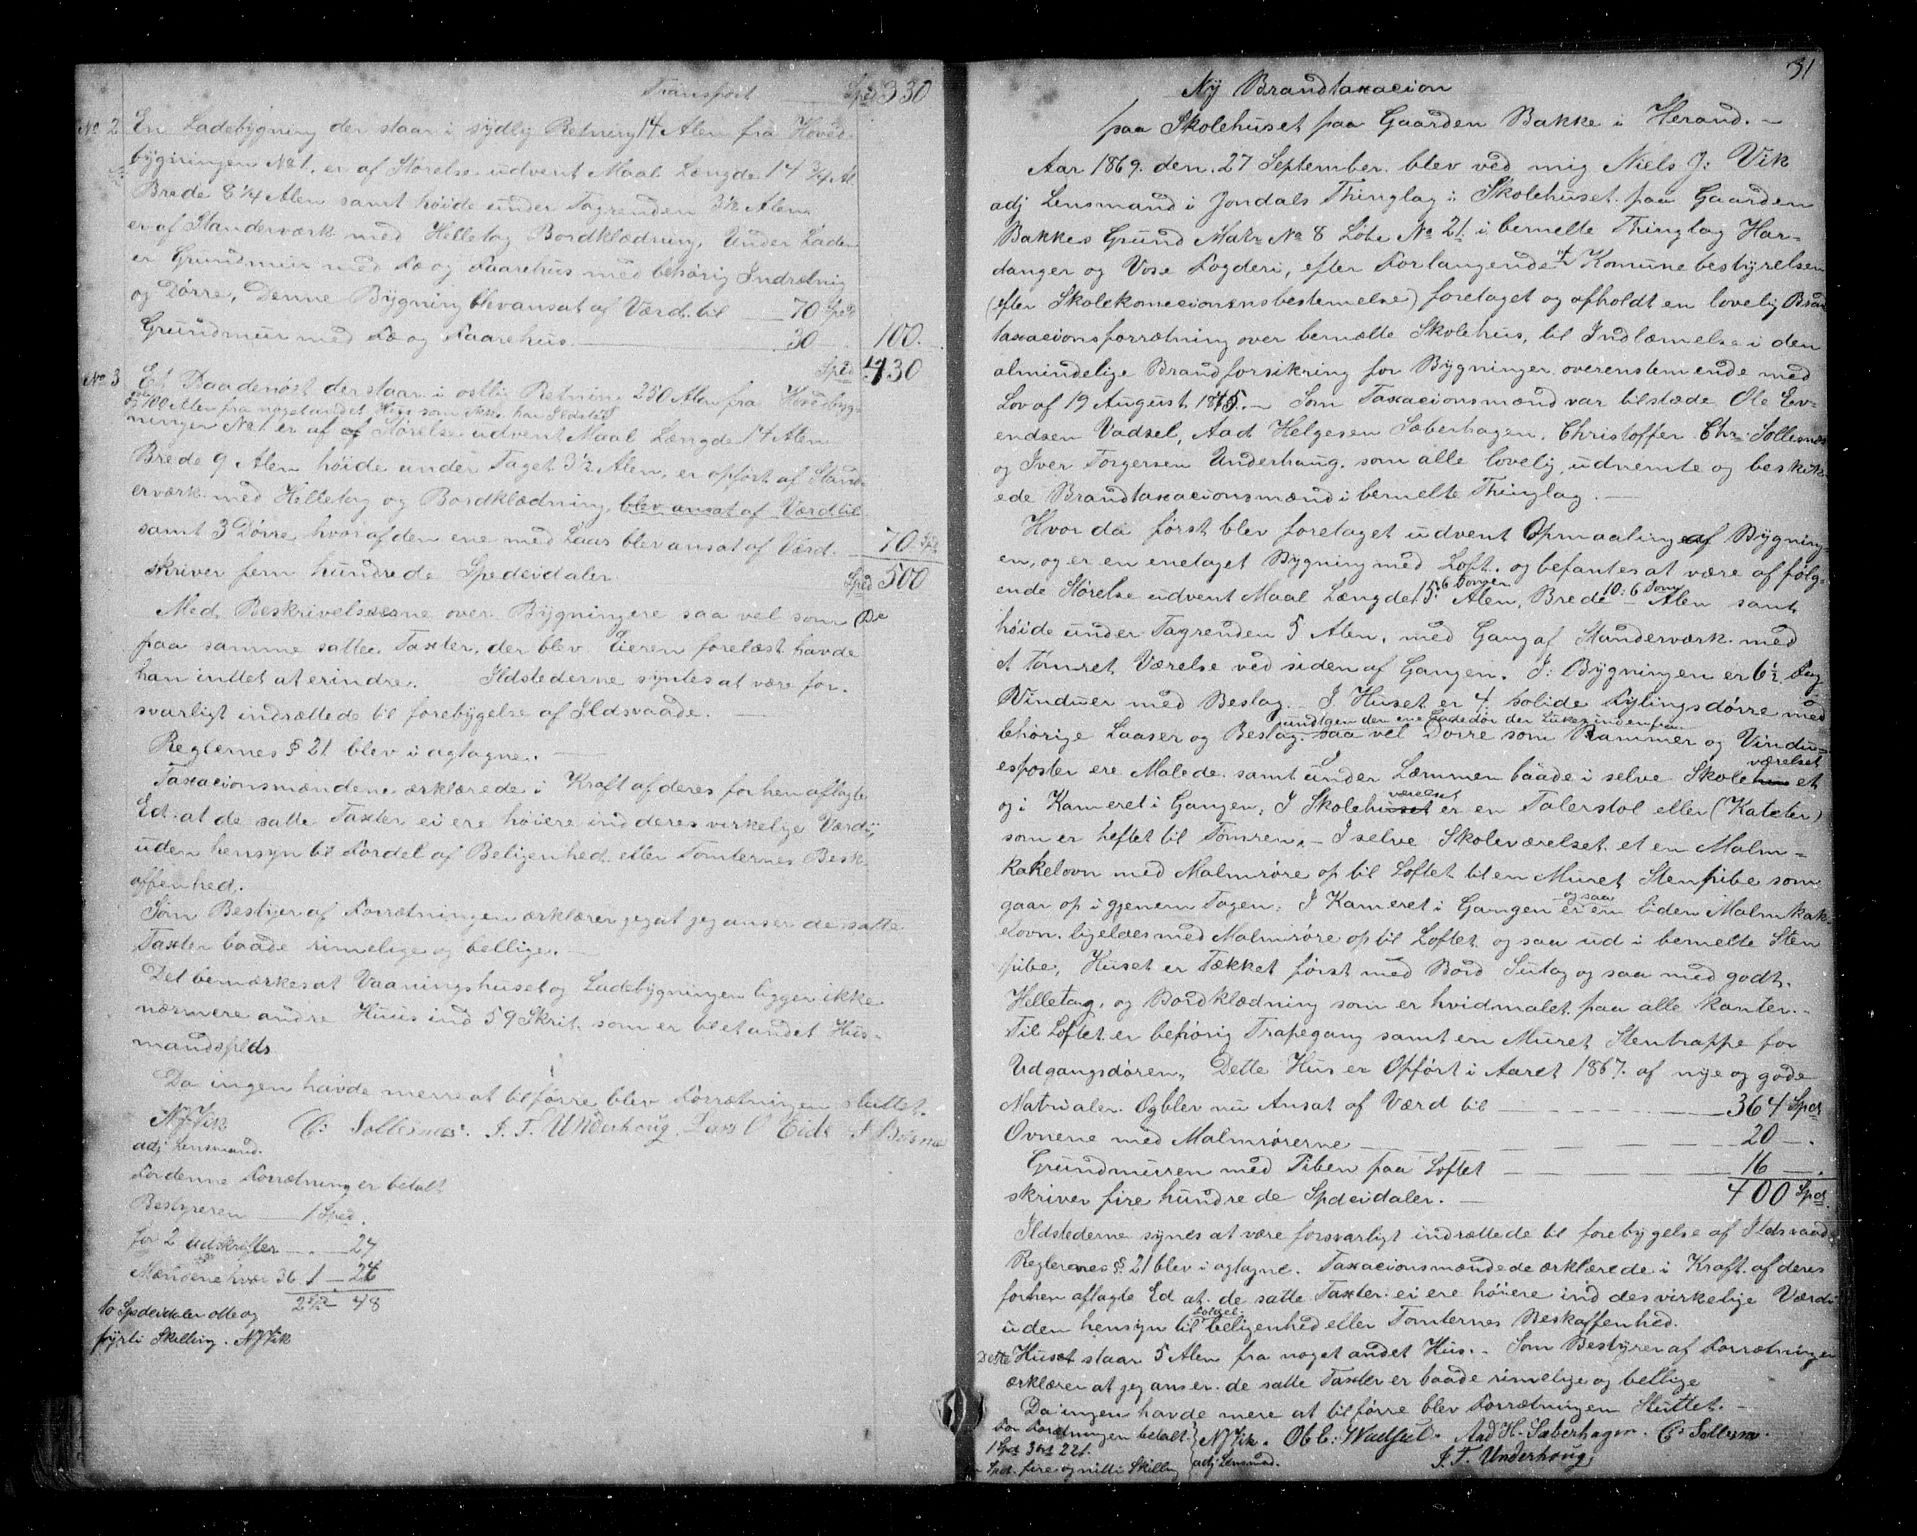 Transport Spd 330
No 2 En Ladebygning der staar i sydlig Retning 14 Alen fra Hoved-
bygningen No 1, er af Størelse udvent Maal Længde 14 3/4 Al
Brede 8 1/4 Alen samt høide under Tagrenden 3 1/2 Alen
er af Standerværk med Helletag Bordklædning, Under Laden
er Grundmur med Fæ og Faarehus med behørig Indretnig
og Dørre, Denne Bygning blev ansat af Værd til 70 Spd
Grundmur med Fæ og Faarehus 30 100.
Spd 430
No 3 Et Baadenøst der staar i ostlig Retning 250 Alen fra Hovedbyg-
og 100 Alen fra noget andet Hus som ikke har Ildsted
ningen No 1 er af Størelse udvent Maal Længde 14 Alen
Brede 9 Alen høide under Taget 3 1/2 Alen, er opført af Stand-
erværk med Helletag og Bordklædning, blev ansat af Værd til
samt 3 Dørre hvoraf den ene med Laas blev ansat af Værd 70 Spd
skriver fem hundrede Spedeidaler Spd 500
Med Beskrivelserne over Bygningere saa vel som De
paa samme satte Taxter, der blev Eieren forelæst havde
han inttet at erindre. Ildstederne syntes at være for-
svarligt indrættede til forebygelse af Ildsvaade.
Reglernes § 21 blev i agtagne.
Taxacionsmændene ærklærede i Kraft af deres forhen aflagte
Ed. at de satte Taxter ei ere høiere ind deres virkelige Værdi
uden hensyn til Fordel af Beligenhed eller Tomternes Besk-
affenhed.
Som Bestyer af Forrætningen ærklærer jeg at jeg anser de satte
Taxter baade rimelige og bellige.
Det bemærkes at Vaaningshuset og Ladebygningen ligger ikke
nærmere andre Huus ind 59 Skrit som er blet andet Hus-
mandspeds
Da ingen havde merre at tilførre blev Forrætningen sluttet.
N J Vik C: Sollesnes. I. T. Underhoug, Lars O Eide
adj Lensmand.
For denne Forrætning er betalt
Bestyreren 1 Spd.
for 2 udskrifter 24
Mændene hver 36 s 1 - 24
2 Spd 48
to Spedeidaler otte og
fyrti Skilling. N J Vik
31
Ny Brandtaxacion
paa Skolehuset paa Gaarden Bakke i Herand.
Aar 1869. den. 27 September. blev ved mig Niels J: Vik
adj Lensmand i Jondals Thinglag i Skolehuset paa Gaarden
Bakkes Grund Matr No 8 Løbe No 21. i bemelte Thinglag Har-
danger og Vose Fogderi, efter Forlangende af Komune bestyrelsen
(efter Skolekomecionens bestemelse) foretaget og afholdt en lovelig Brand
taxacionsforrætning over bemælte Skolehus, til Indlæmelse i den
almindelige Brandforsikring for Bygninger overenstemende med
Lov af 19 August 1845. - Som Taxacionsmænd var tilstæde Ole Ev-
endsen Vadsel, Aad Helgesen Sæberhagen, Christoffer Chr: Sollesnes
og Iver Torgersen Underhaug. som alle lovelig udnemte og beskik-
ede Brandtaxacionsmænd i bemelte Thinglag.
Hvor da først blev foretaget udvent Opmaaling af Bygning-
en, og er en enetaget Bygning med Loft. og befantes at være af følg-
ende Størelse udvent Maal Længde 15. 6 Tommer Alen, Brede 10: 6 Tom Alen samt
høide under Tagrenden 5 Alen, med Gang af Standerværk med
et tømret Værelse ved siden af Gangen. I: Bygningen er 6 1/2 Fag
Vinduer med Beslag. I Huset er 4 solide Fylingsdørre med
undtgen den ene Gadedør der Lukes indenfra
behørige Laaser og Beslag. saa vel Dørre som Rammer og Vindu-
esposter ere Malede. samt under Læmmen baade i selve Skolehuset værelset
og i Kameret i Gangen, I Skolehuset værelset er en Talerstol eller (Kateter)
som er heftet til Tømren. - I selve Skoleværelset et en Malm-
kakelovn med Malmrøre op til Loftet til en Muret Stenpibe som
gaar op i gjenem Tagen. I Kameret i Gangen og saa er en liden Malmkak-
elovn. ligeldes med Malmrøre op til Loftet og saa ud i bemelte Sten
pibe, Huset er Tækket først med Bord Sutag og saa med godt
Helletag, og Bordklædning som er hvidmalet paa alle kanter.
Til Loftet er behørig Trapegang samt en Muret Stentrappe for
Udgangsdøren. Dette Hus er Opført i Aaret 1867. af nye og gode
Matrialer. Og blev nu Ansat af Værd til 364 Spd
Ovnene med Malmrørerne 20
Grundmuren med Piben paa Loftet 16
skriver fire hundrede Spdeidaler. 400 Spd.
Ildstederne synes at være forsvarligt indrættede til forebygelse af Ildsvaad
Reglernes § 21 blev i agtagne. Taxacionsmændede ærklærede i Kraft af deres
forhen aflagte Ed at de satte Taxter ei ere høiere ind des virkelige Værdi
uden hensyn til Fordel beligenhed eller Tomternes Beskaffenhed.
Dette Huset staar 5 Alen fra noget andet Hus. - Som Bestyrer af Forrætningen
ærklærer at jeg anser de satte Taxter er baade rimelige og bellige
Da ingen havde mere at tilførre blev Forrætningen Sluttet.
For Forætningen betalt N J Vik. Ol E: Wadsel. Aad H. Sæberhagen. C: Sollesnes.
1 Spd 3 ort 22 s.
Spd. fire og nitti Skilling adj Lensmad. I. T. Underhoug.